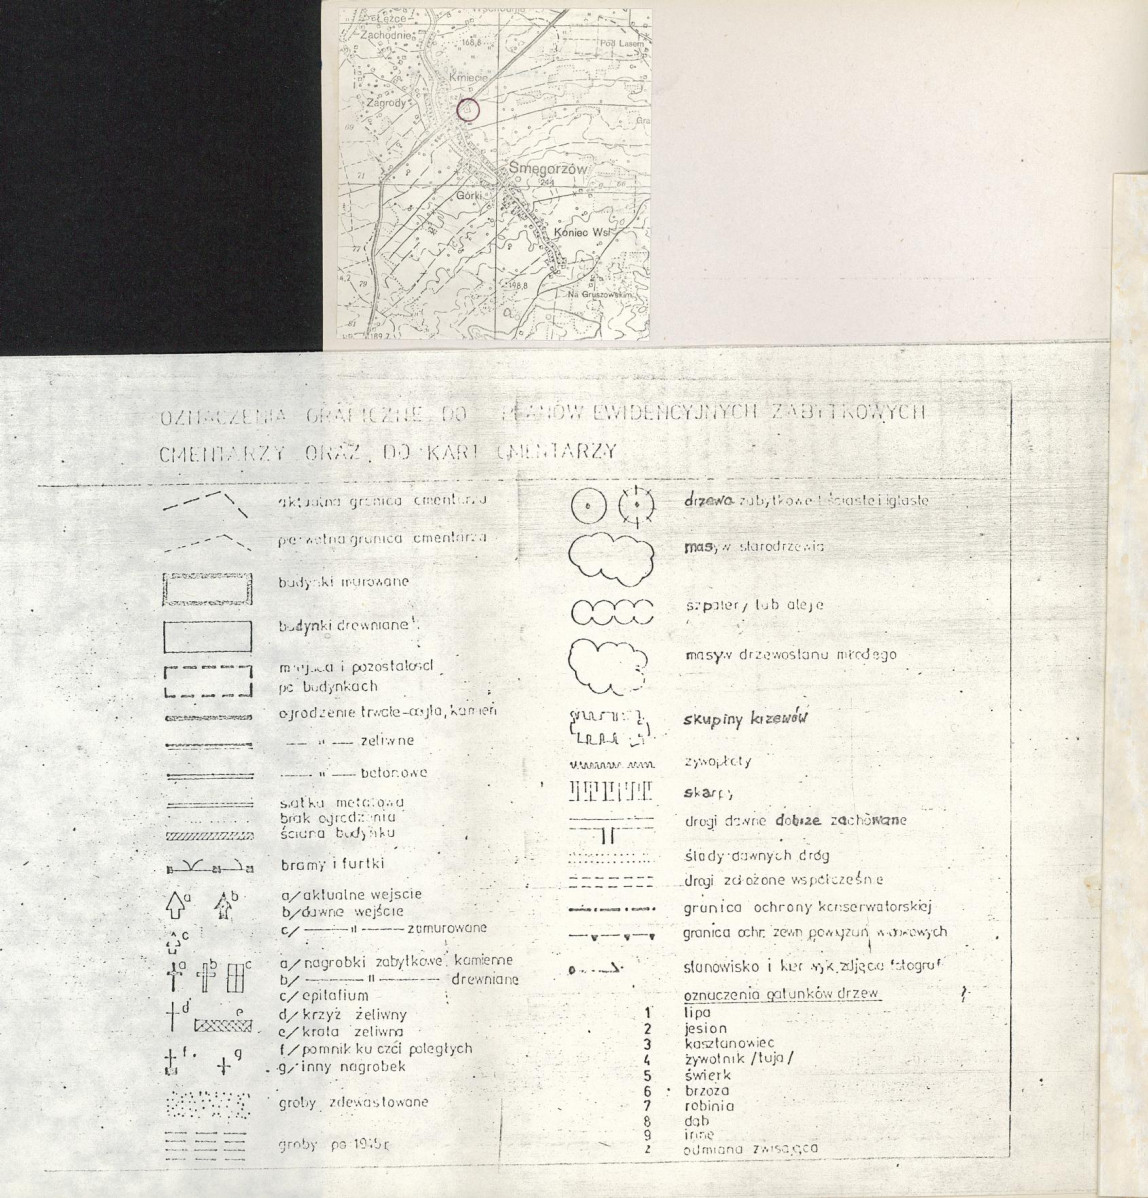 Zachodnie
168,8
Pod Lasem
Kmiecie
Zagrody
69
71
Smęgorzów
244
Górki
Koniec Wsi
77
79
198,8
Na Gruszowskim
81
189,2
OZNACZENIA GRAFICZNE DO PLANÓW EWIDENCYJNYCH ZABYTKOWYCH
CMENTARZY ORAZ DO KART CMENTARZY
aktualna granica cmentarza
pierwotna granica cmentarza
budynki murowane
budynki drewniane
miejsca i pozostałości
po budynkach
ogrodzenie trwałe-cegła, kamień
—— " —— żeliwne
—— " —— betonowe
siatka metalowa
brak ogrodzenia
ściana budynku
bramy i furtki
a b
a/aktualne wejscie
b/dawne wejście
c
c/ —— " —— zamurowane
a b c
a/nagrobki zabytkowe kamienne
b/ —— " —— drewniane
c/epitafium
d e
d/krzyż żeliwny
e/krata żeliwna
f g
f/pomnik ku czci poległych
g/inny nagrobek
groby zdewastowane
groby po 1945r
drzewa zabytkowe liściaste i iglaste
masyw starodrzewia
szpalery lub aleje
masyw drzewostanu młodego
skupiny krzewów
żywopłoty
skarpy
drogi dawne dobrze zachowane
ślady dawnych dróg
drogi założone współcześnie
granica ochrony konserwatorskiej
granica ochr. zewn. powiązań widokowych
stanowisko i kier. wyk. zdjęcia fotograf.
oznaczenia gatunków drzew
1 lipa
2 jesion
3 kasztanowiec
4 żywotnik /tuja/
5 świerk
6 brzoza
7 robinia
8 dąb
9 inne
z odmiana zwisająca